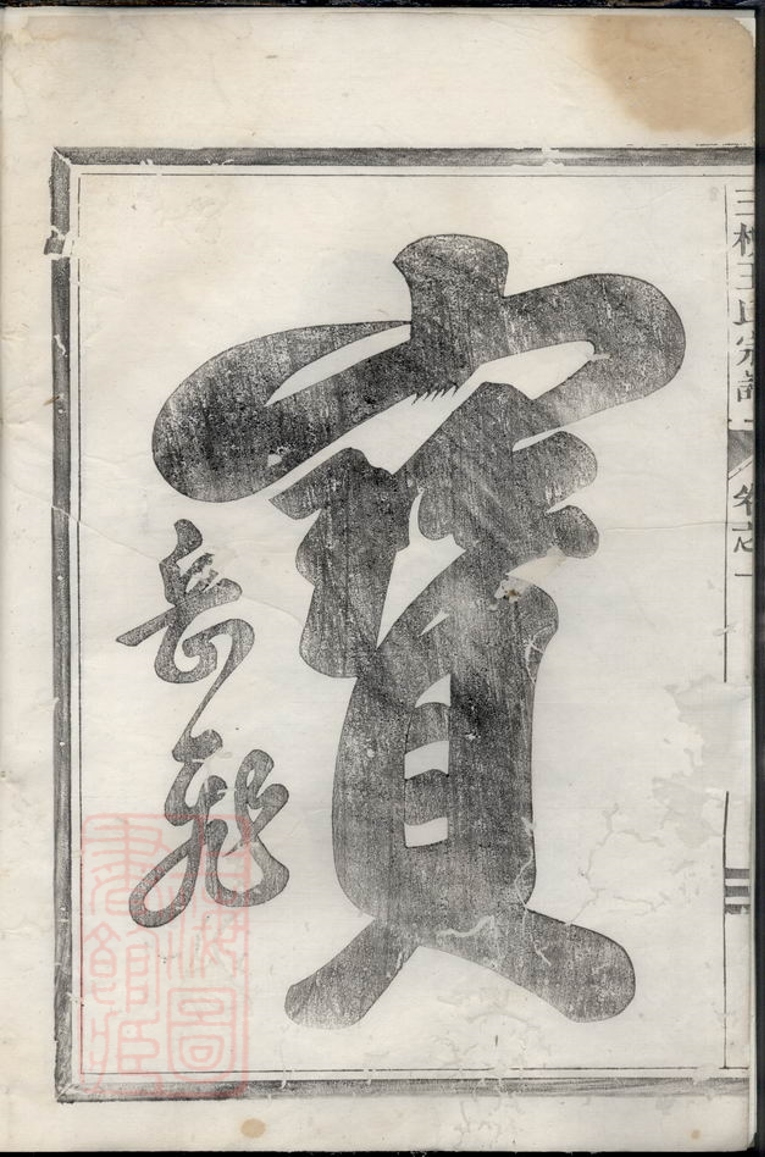 三槐王氏宗譜
卷之一
寶
岳飛
上海圖
書館藏